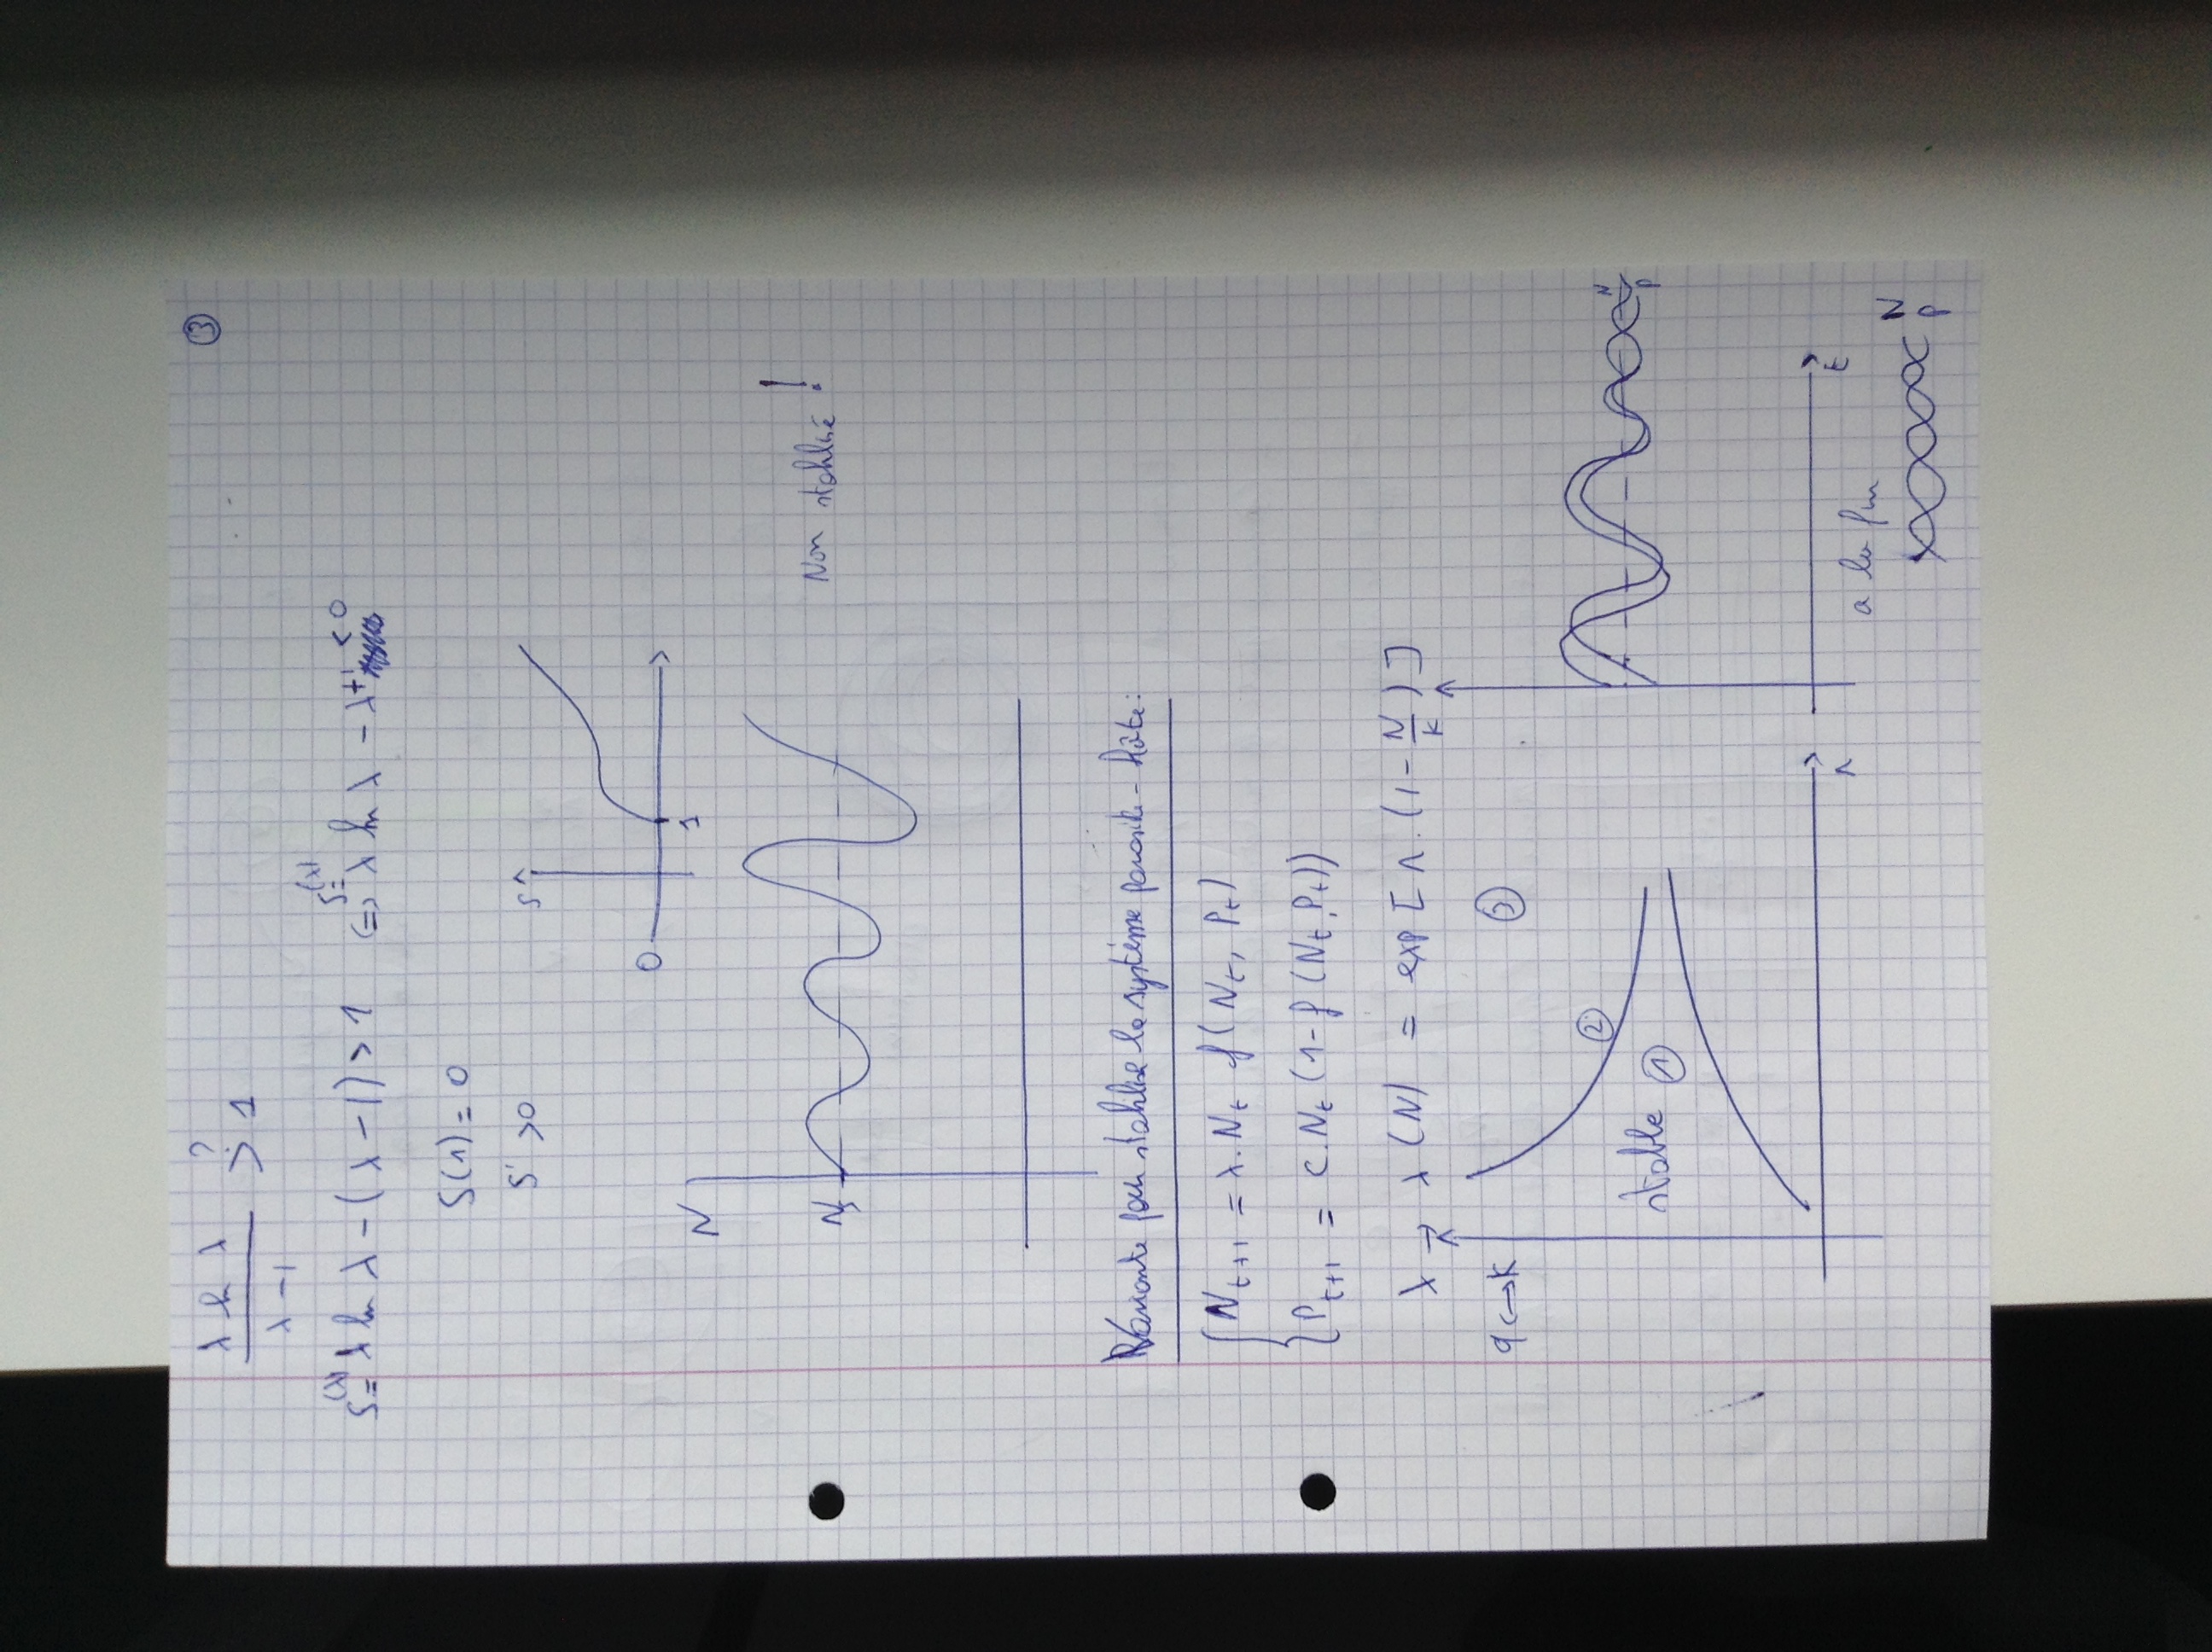 ③
λ ln λ / λ - 1 >? 1
S(λ) = λ ln λ - (λ - 1) > 1 ⇔ S(λ) = λ ln λ - λ + 1 < 0
S(1) = 0
S' > 0
S
0
1
N
N
Non stabilisé !
Variante pour stabilise le système parasite - hôte :
N_{t+1} = λ. N_t f(N_t, P_t)
P_{t+1} = C. N_t (1 - f(N_t, P_t))
λ → λ(N) = exp [ r. (1 - N/K) ]
q ↔ k
③
②
stable ①
r
N
P
t
a la fin
N
P